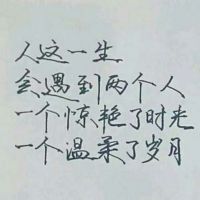 人这一生
会遇到两个人
一个惊艳了时光
一个温柔了岁月